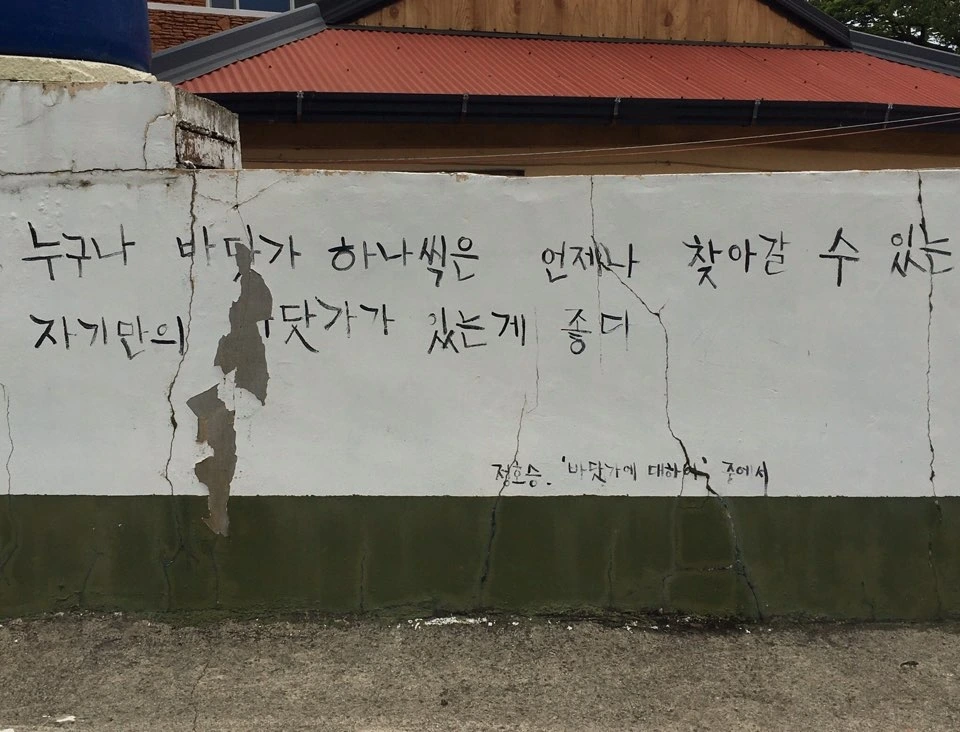 누구나 바닷가 하나씩은 언제나 찾아갈 수 있는
자기만의 바닷가가 있는게 좋다
정호승. '바닷가에 대하여' 중에서